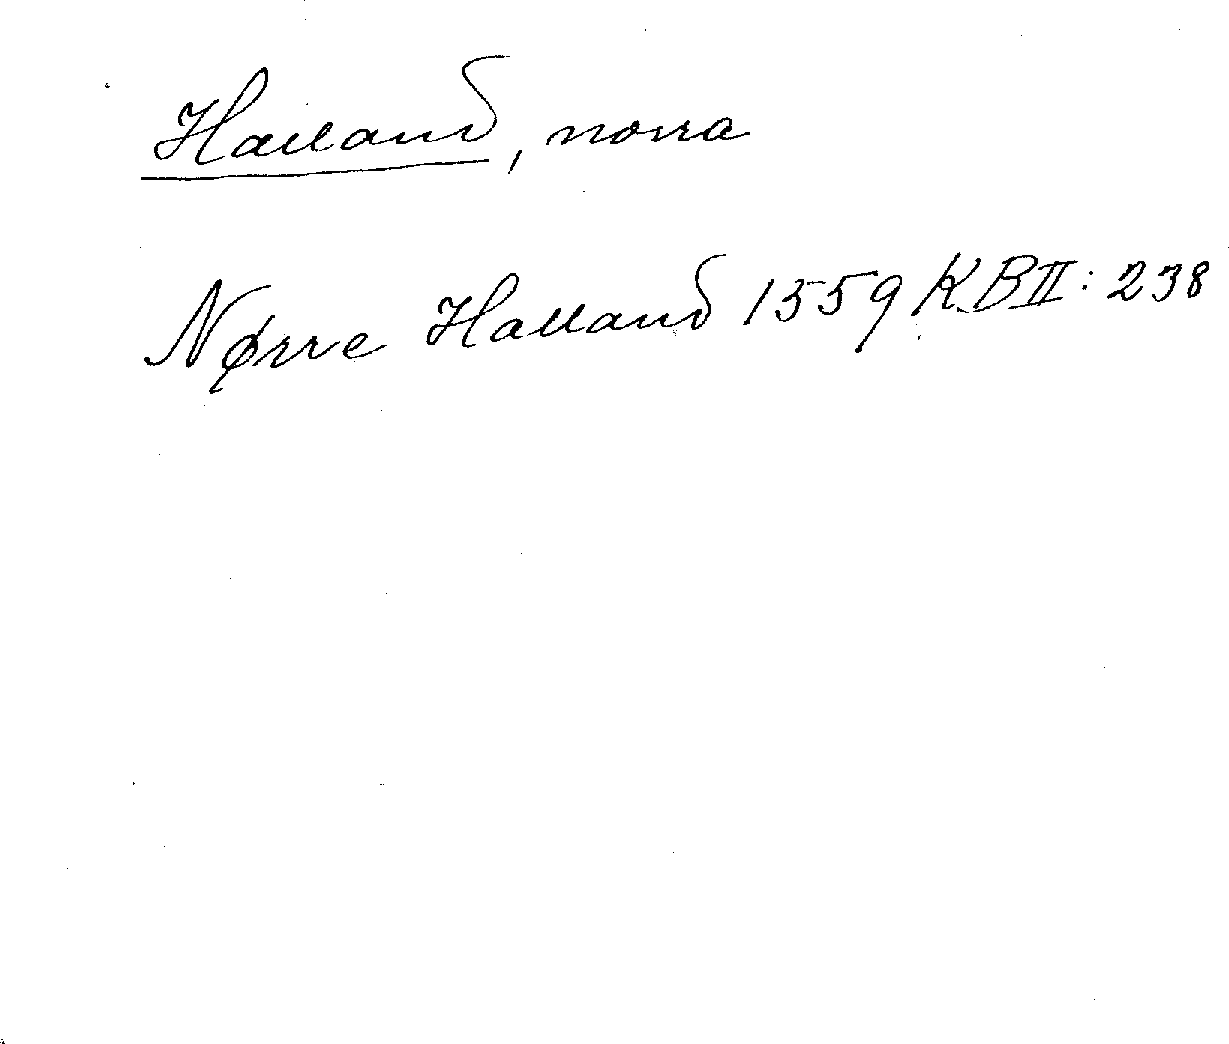 Halland, norra
Nørre Halland 1559 KB II: 238